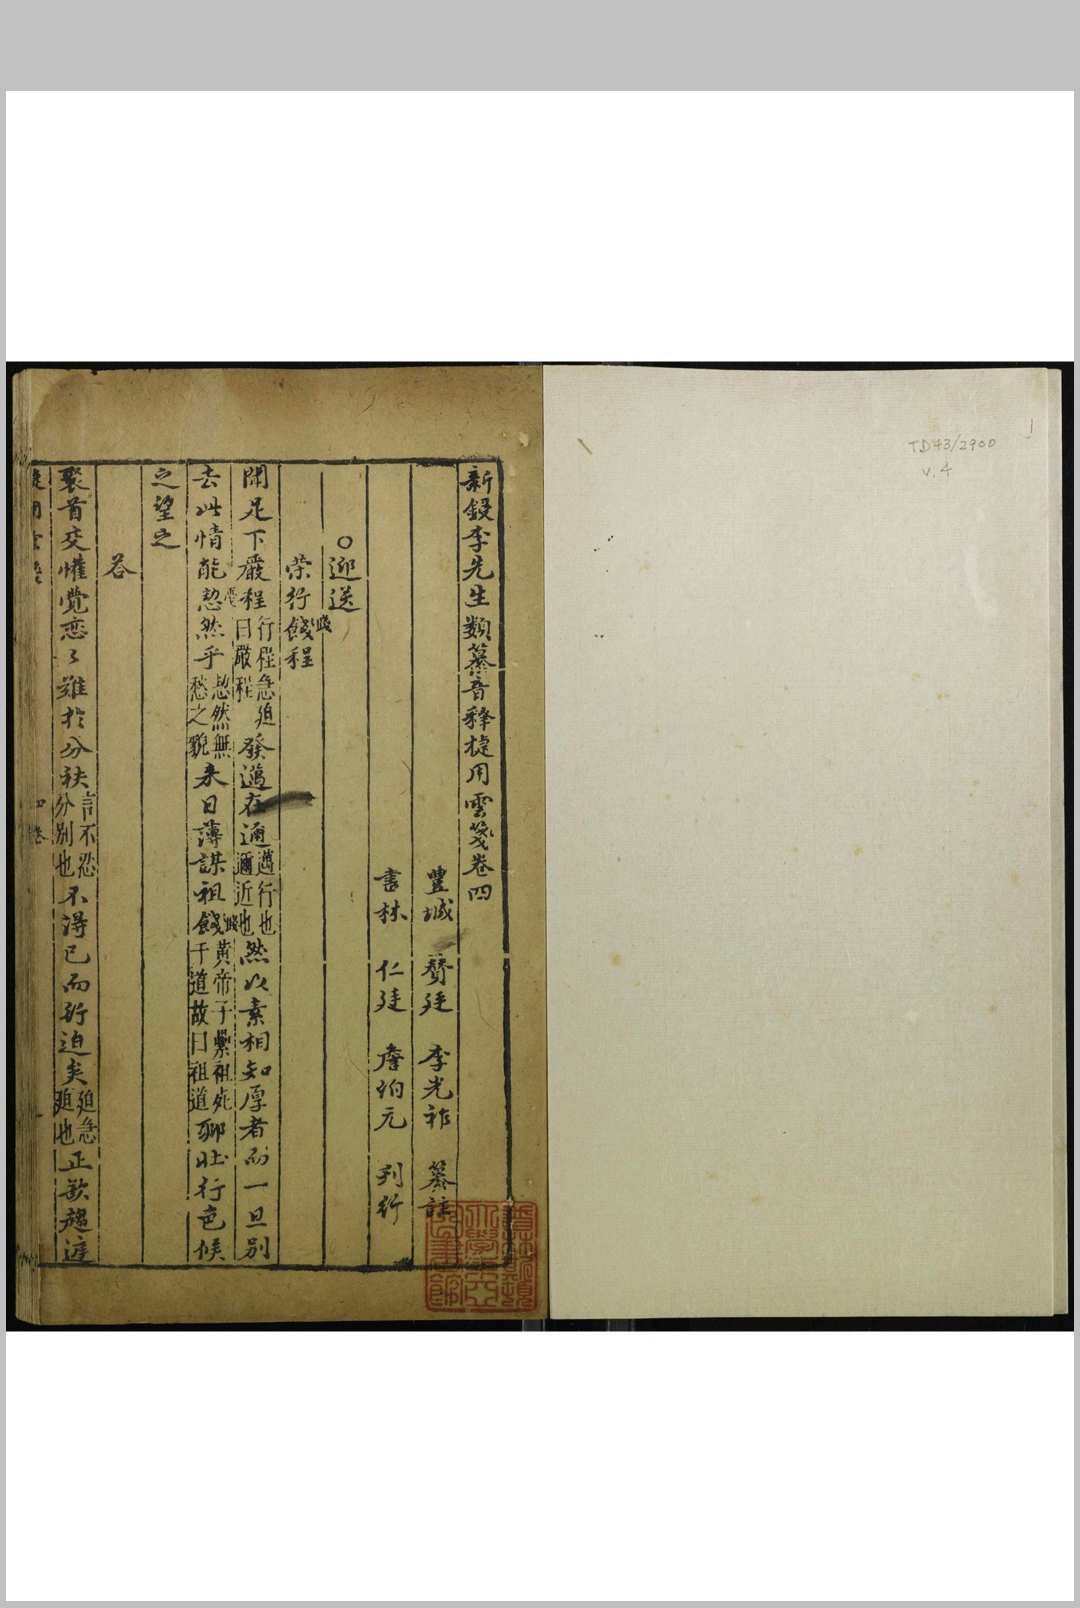 TD43/2900
v.4
新鋟李先生類纂音釋㨗用雲箋卷四
豐城 賛廷 李光祚 纂註
書林 仁廷 詹伯元 刋行
○迎送
荣行餞程
聞足下嚴程行程急廹曰嚴程發邁在邇邁行也邇近也然以素相知厚者而一旦别
去此情能恝然乎恝然無愁之貌来日薄謀祖餞黄帝子纍祖死于道故曰祖道聊壮行色候
之望之
荅
聚首交懽覺恋々難於分袂言不忍分别也不得已而行迫矣廹急也正欲趨